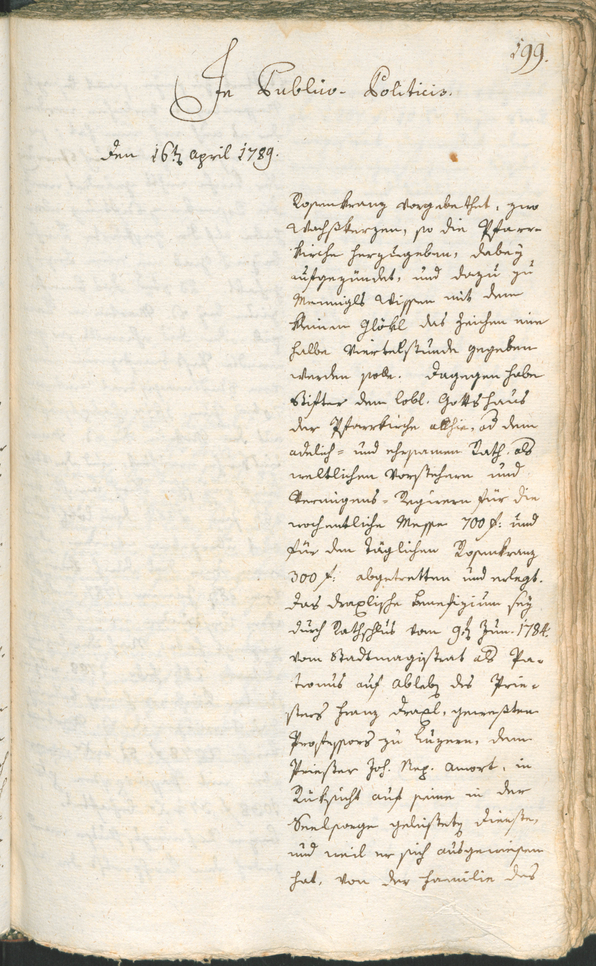 199.
In Publico-Politicis.
Den 16t April 1789.
Rosenkranz vorgebethet, zwo
Wachskerzen, so die Pfarr-
kirche herzugeben, dabey
aufgezündet, und dazu zu
Mennigls Wissen mit dem
kleinen Glöckl das Zeichen eine
halbe Viertelstunde gegeben
werden solle. Dagegen habe
Stifter dem löbl. Gottshaus
der Pfarrkirche allhie, od dem
adelich- und ehrsamen Rath, als
weltlichen Vorstehern und
Vermögens-Regierern für die
wochentliche Messe 700 f: und
für den täglichen Rosenkranz
300 f: abgetretten und erlegt.
Das draxlische Benefizium sey
durch Rathschlus vom 9t Jun. 1784.
vom Stadtmagistrat als Pa-
tronus auf Ableb des Prie-
sters Franz Draxl, geweßten
Professors zu Luzern, dem
Priester Joh. Nep: Amort, in
Rücksicht auf seine in der
Seelsorge geleistete Dienste,
und weil er sich ausgewiesen
hat, von der Familie des